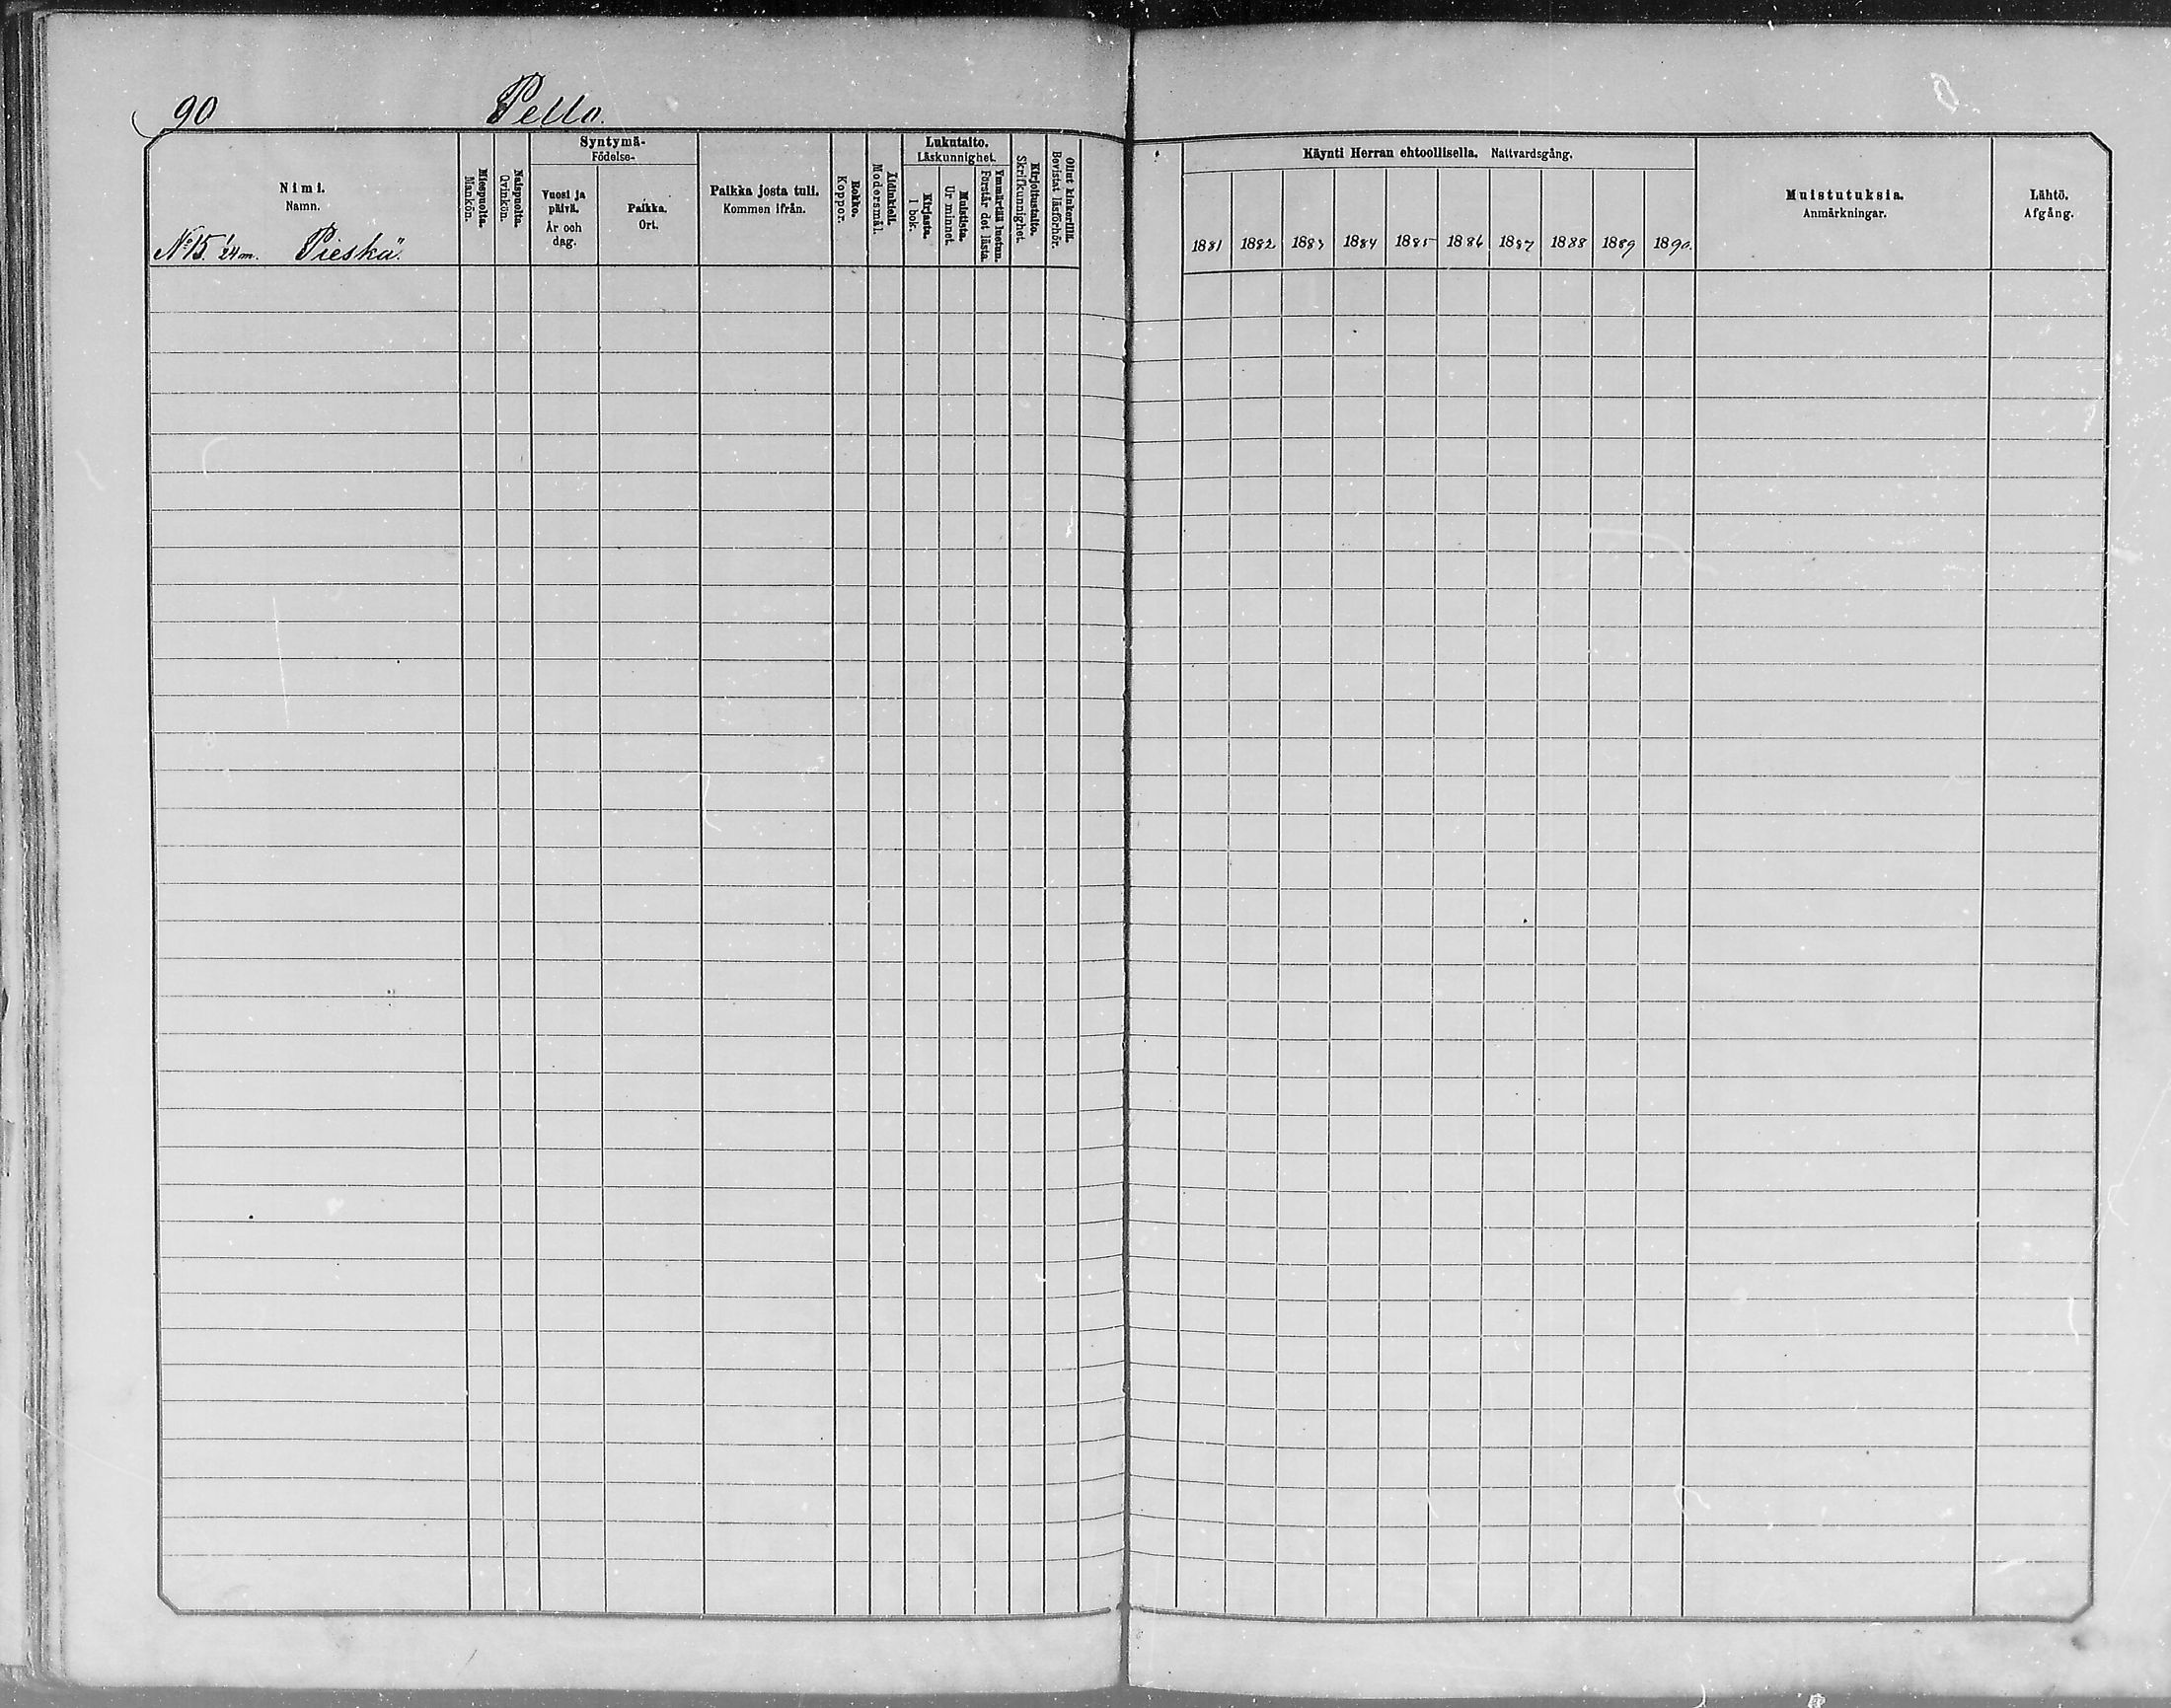 90 Pello.
Nimi.
Namn.
No 15. 1/24 m. Pieskä.
Miespuolia.
Mankön.
Naispuolia.
Qvinkön.
Syntymä-
Födelse-
Vuosi ja
päivä.
År och
dag.
Paikka.
Ort.
Paikka josta tuli.
Kommen ifrån.
Rokko.
Koppor.
Äidinkieli.
Modersmål.
Lukutaito.
Läskunnighet.
Kirjasta.
I bok.
Muistista.
Ur minnet.
Ymmärtää luetun.
Förstår det lästa.
Kirjoitustaito.
Skrifkunnighet.
Ollut kinkerillä.
Bevistat läsförhör.
Käynti Herran ehtoollisella. Nattvardsgång.
1881 1882 1883 1884 1885 1886 1887 1888 1889 1890.
Muistutuksia.
Anmärkningar.
Lähtö.
Afgång.